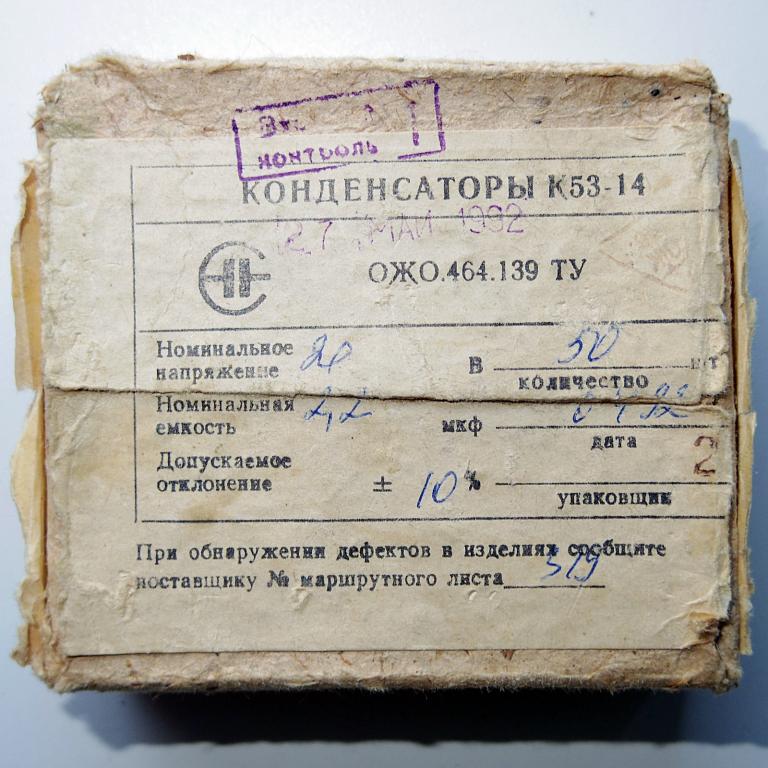 контроль
КОНДЕНСАТОРЫ К53-14
27 МАЙ 1992
ОЖО.464.139 ТУ
Номинальное
напряжение 20 В 50 шт
количество
Номинальная
емкость 2,2 мкф 04 92
дата
Допускаемое 2
отклонение ± 10 %
упаковщик
При обнаружении дефектов в изделиях сообщите
поставщику № маршрутного листа 319